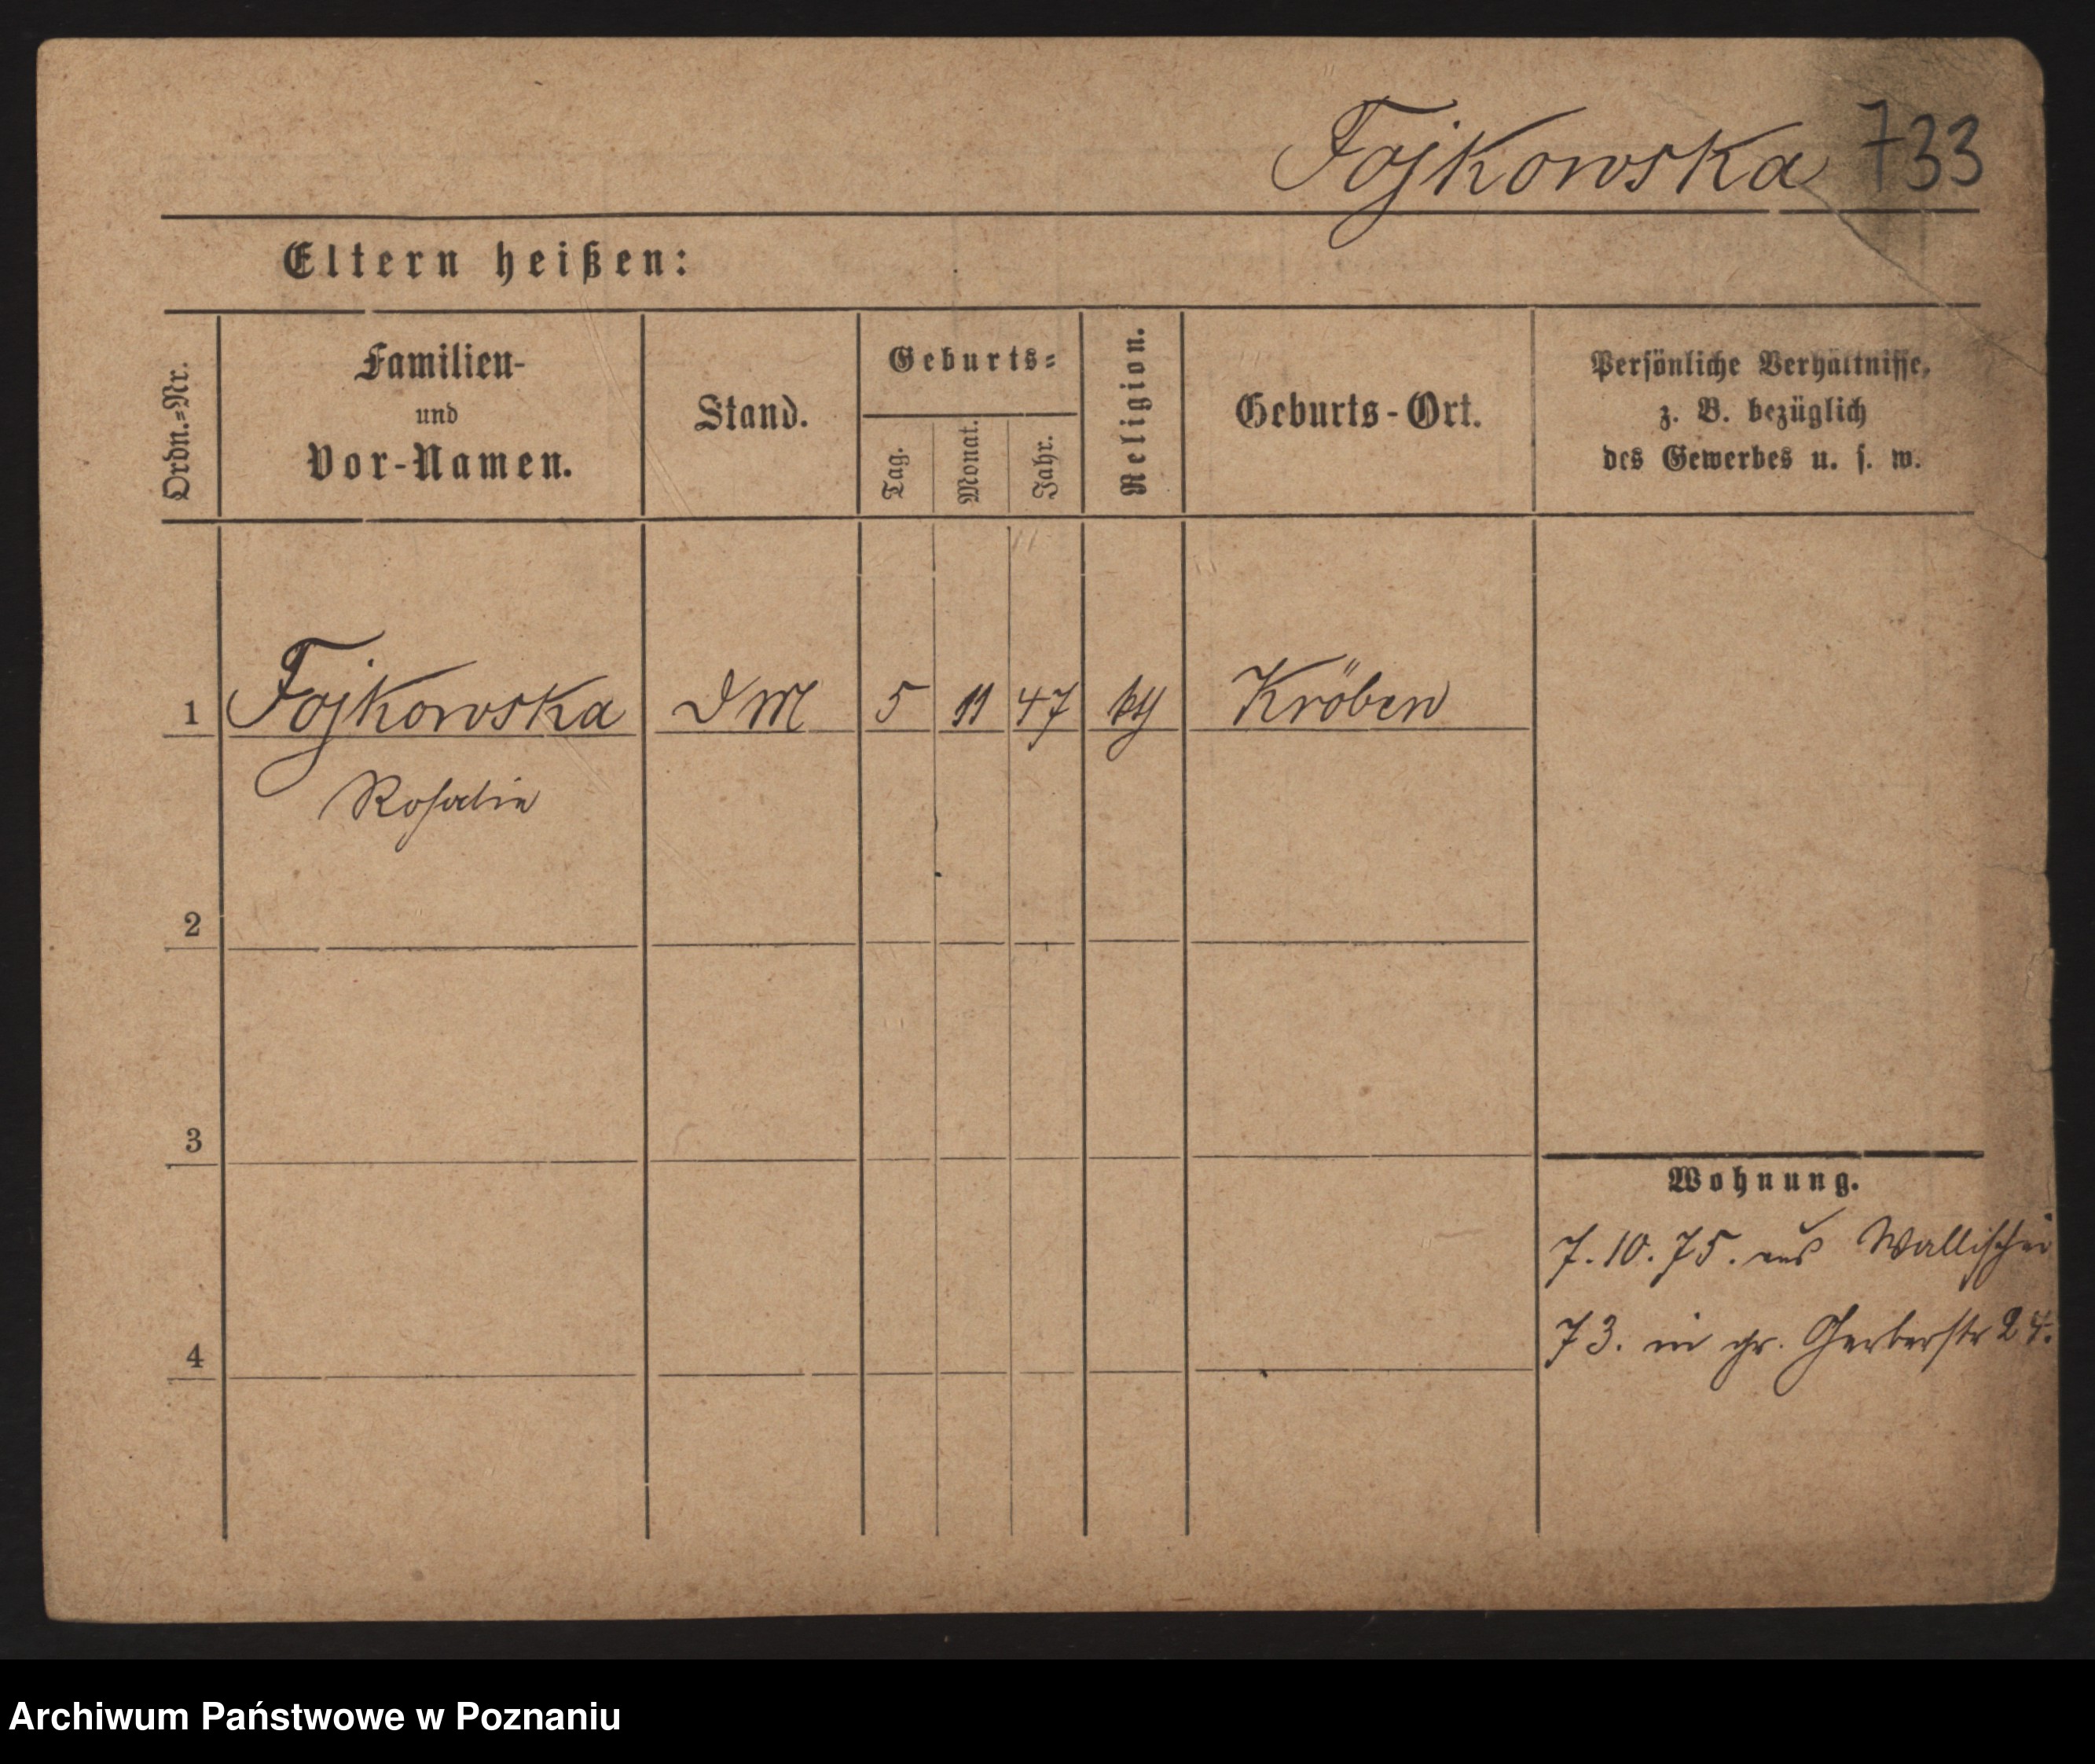 Fojkowska 733
Eltern heißen:
Ordn.=Nr.
Familien-
und
Vor-Namen.
Stand.
Geburts=
Tag.
Monat.
Jahr.
Religion.
Geburts-Ort.
Persönliche Verhältnisse,
z. B. bezüglich
des Gewerbes u. s. w.
1 Fojkowska DM 5 11 47 kth Kröben
Rosalie
2
3
4
Wohnung.
7.10.75. aus Wallischei
73. in gr. Gerberstr 24.
Archiwum Państwowe w Poznaniu